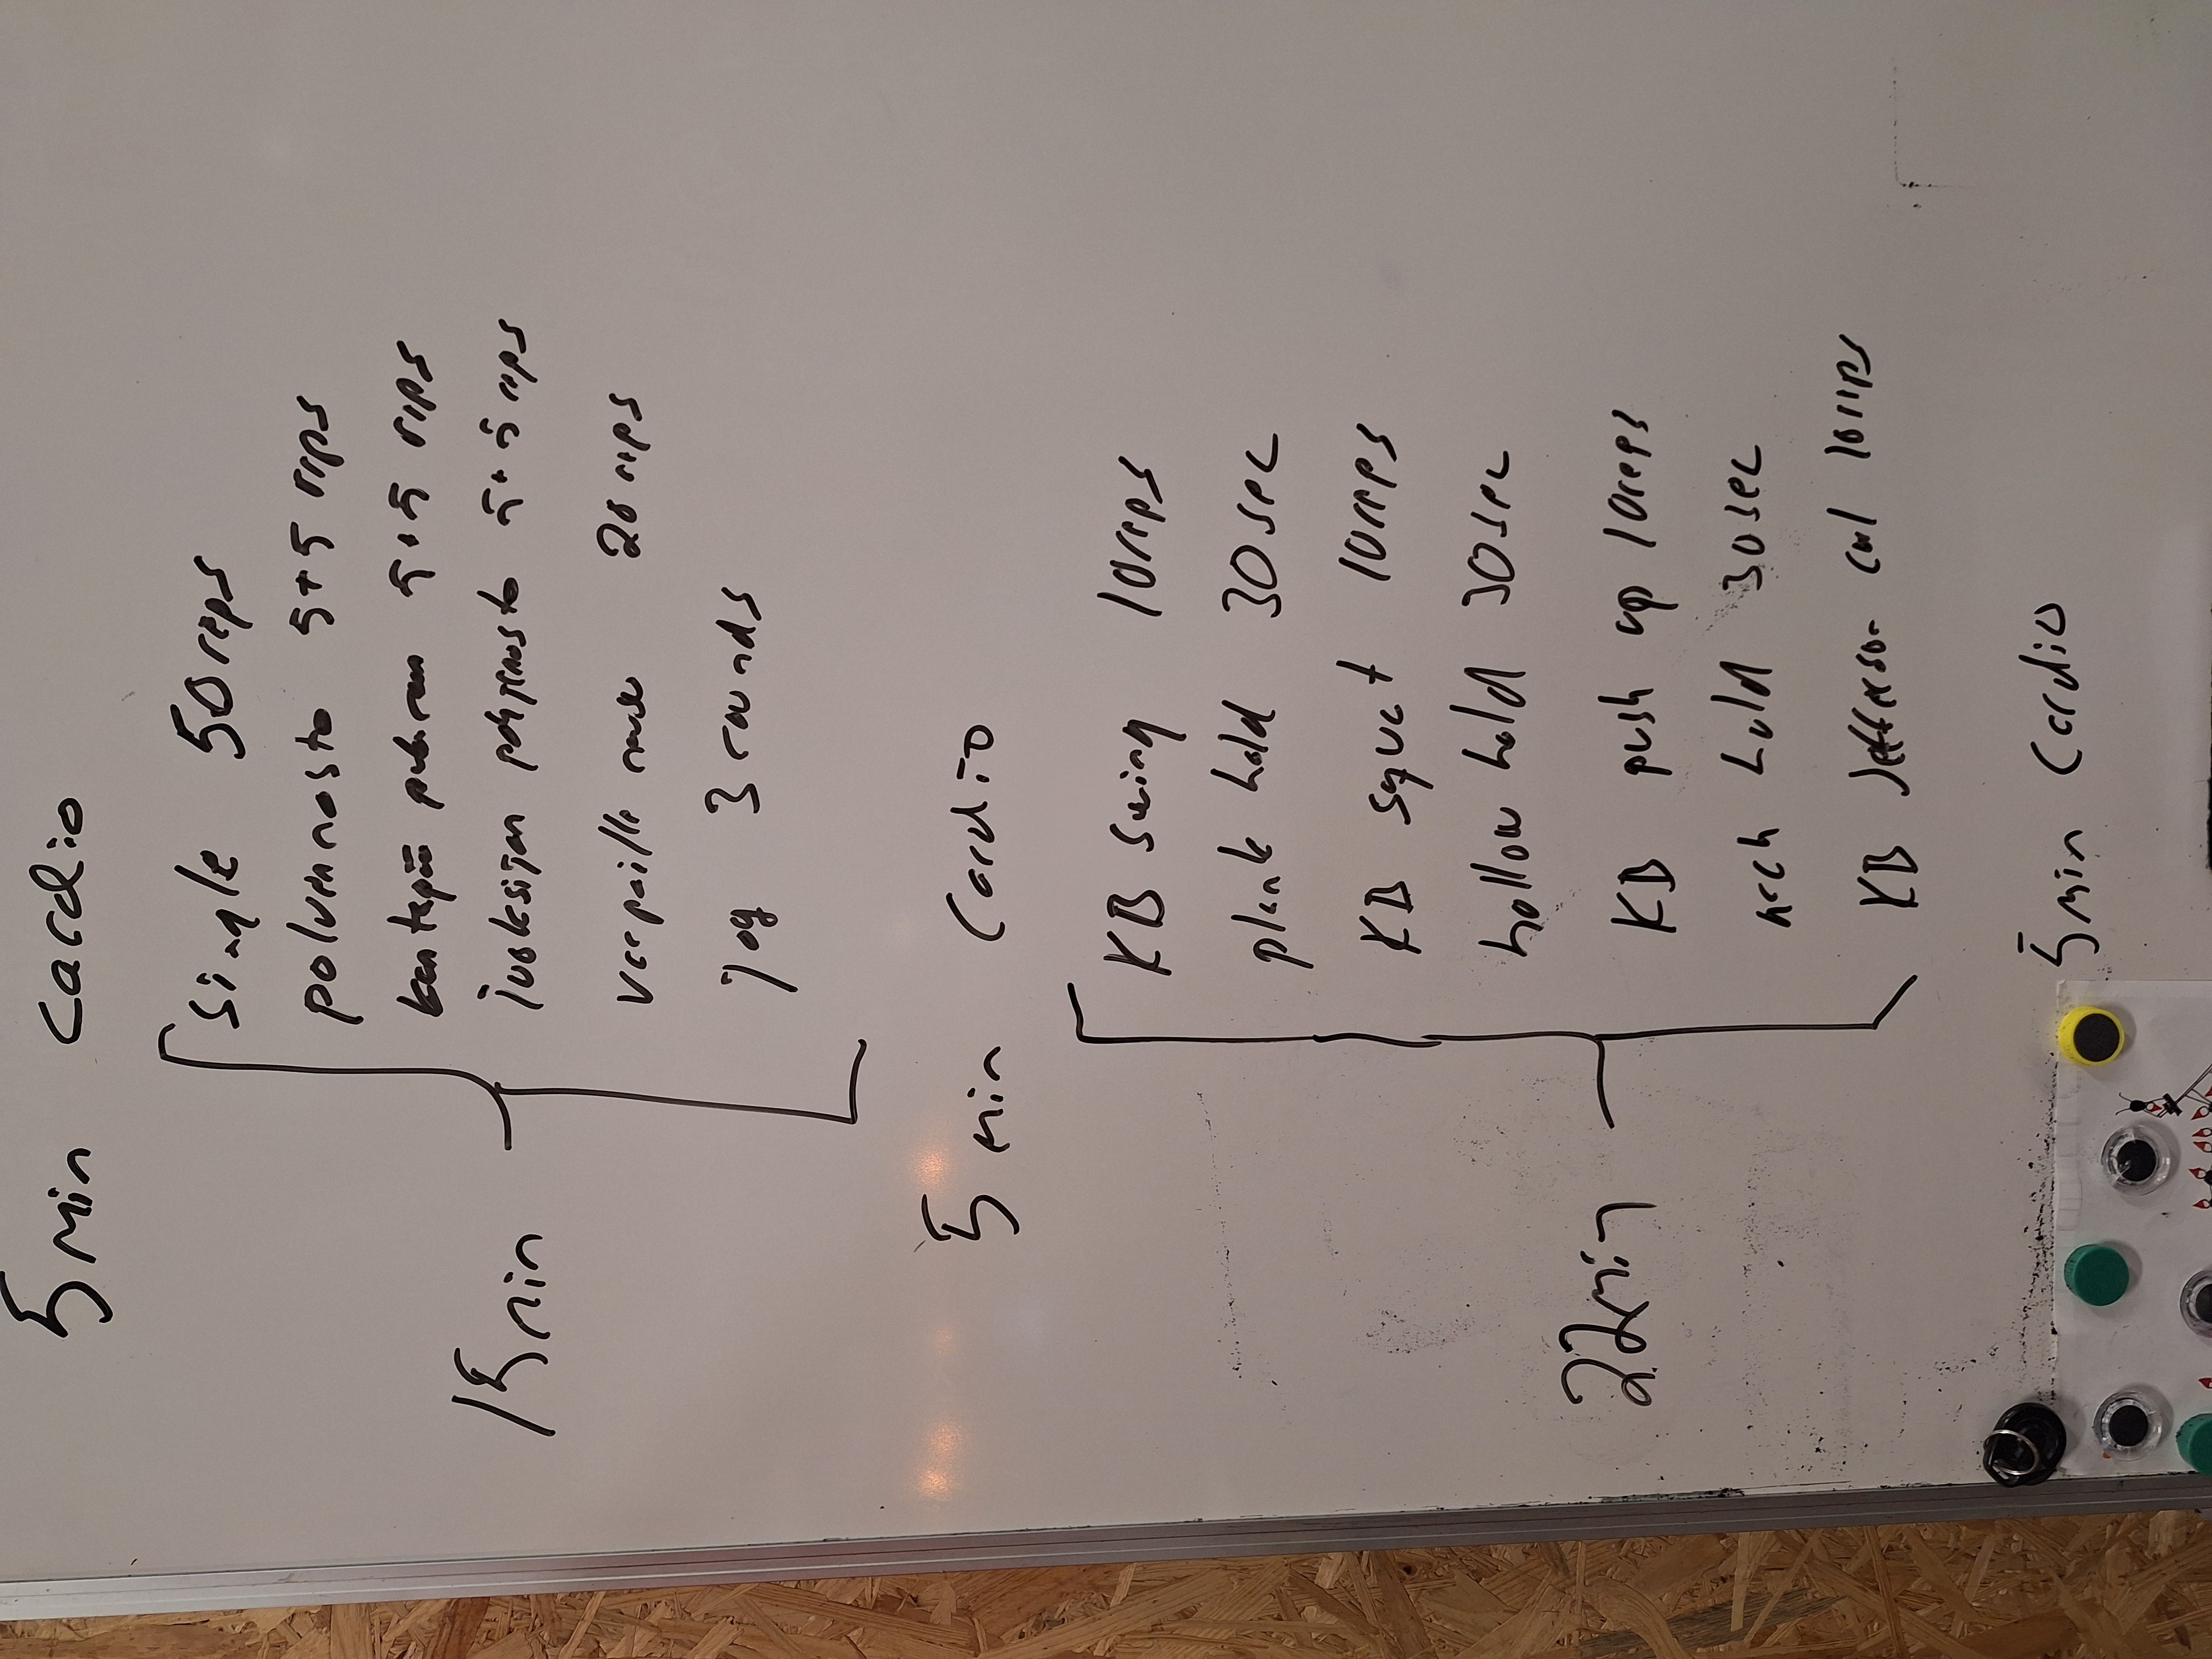 5 min cardio
single 50 reps
polvennosto 5+5 reps
kantapää 5+5 reps
juoksijan polvennosto 5+5 reps
20 reps
jog 3 rounds
15 min
5 min Cardio
KB swing 10reps
plank hold 30sec
KB squat 10reps
hollow hold 30sec
KB push up 10reps
arch hold 30sec
KB Jefferson curl 10reps
22min
5min Cardio